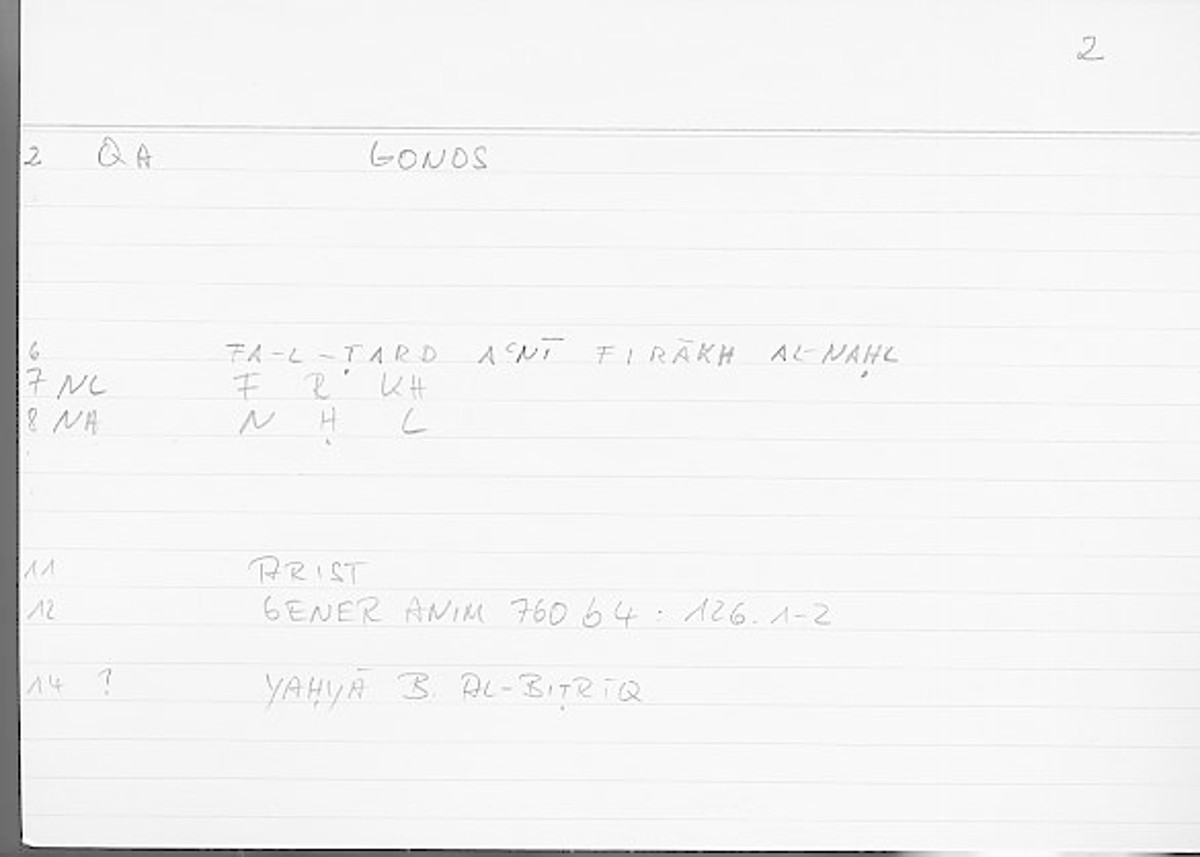 2
2 QA GONOS
6 FA-L-ṬARD AʿNĪ FIRĀKH AL-NAḤL
7 NL F R KH
8 NA N Ḥ L
11 ARIST
12 GENER ANIM 760 b 4 : 126. 1-2
14 ? YAḤYĀ B. AL-BIṬRĪQ